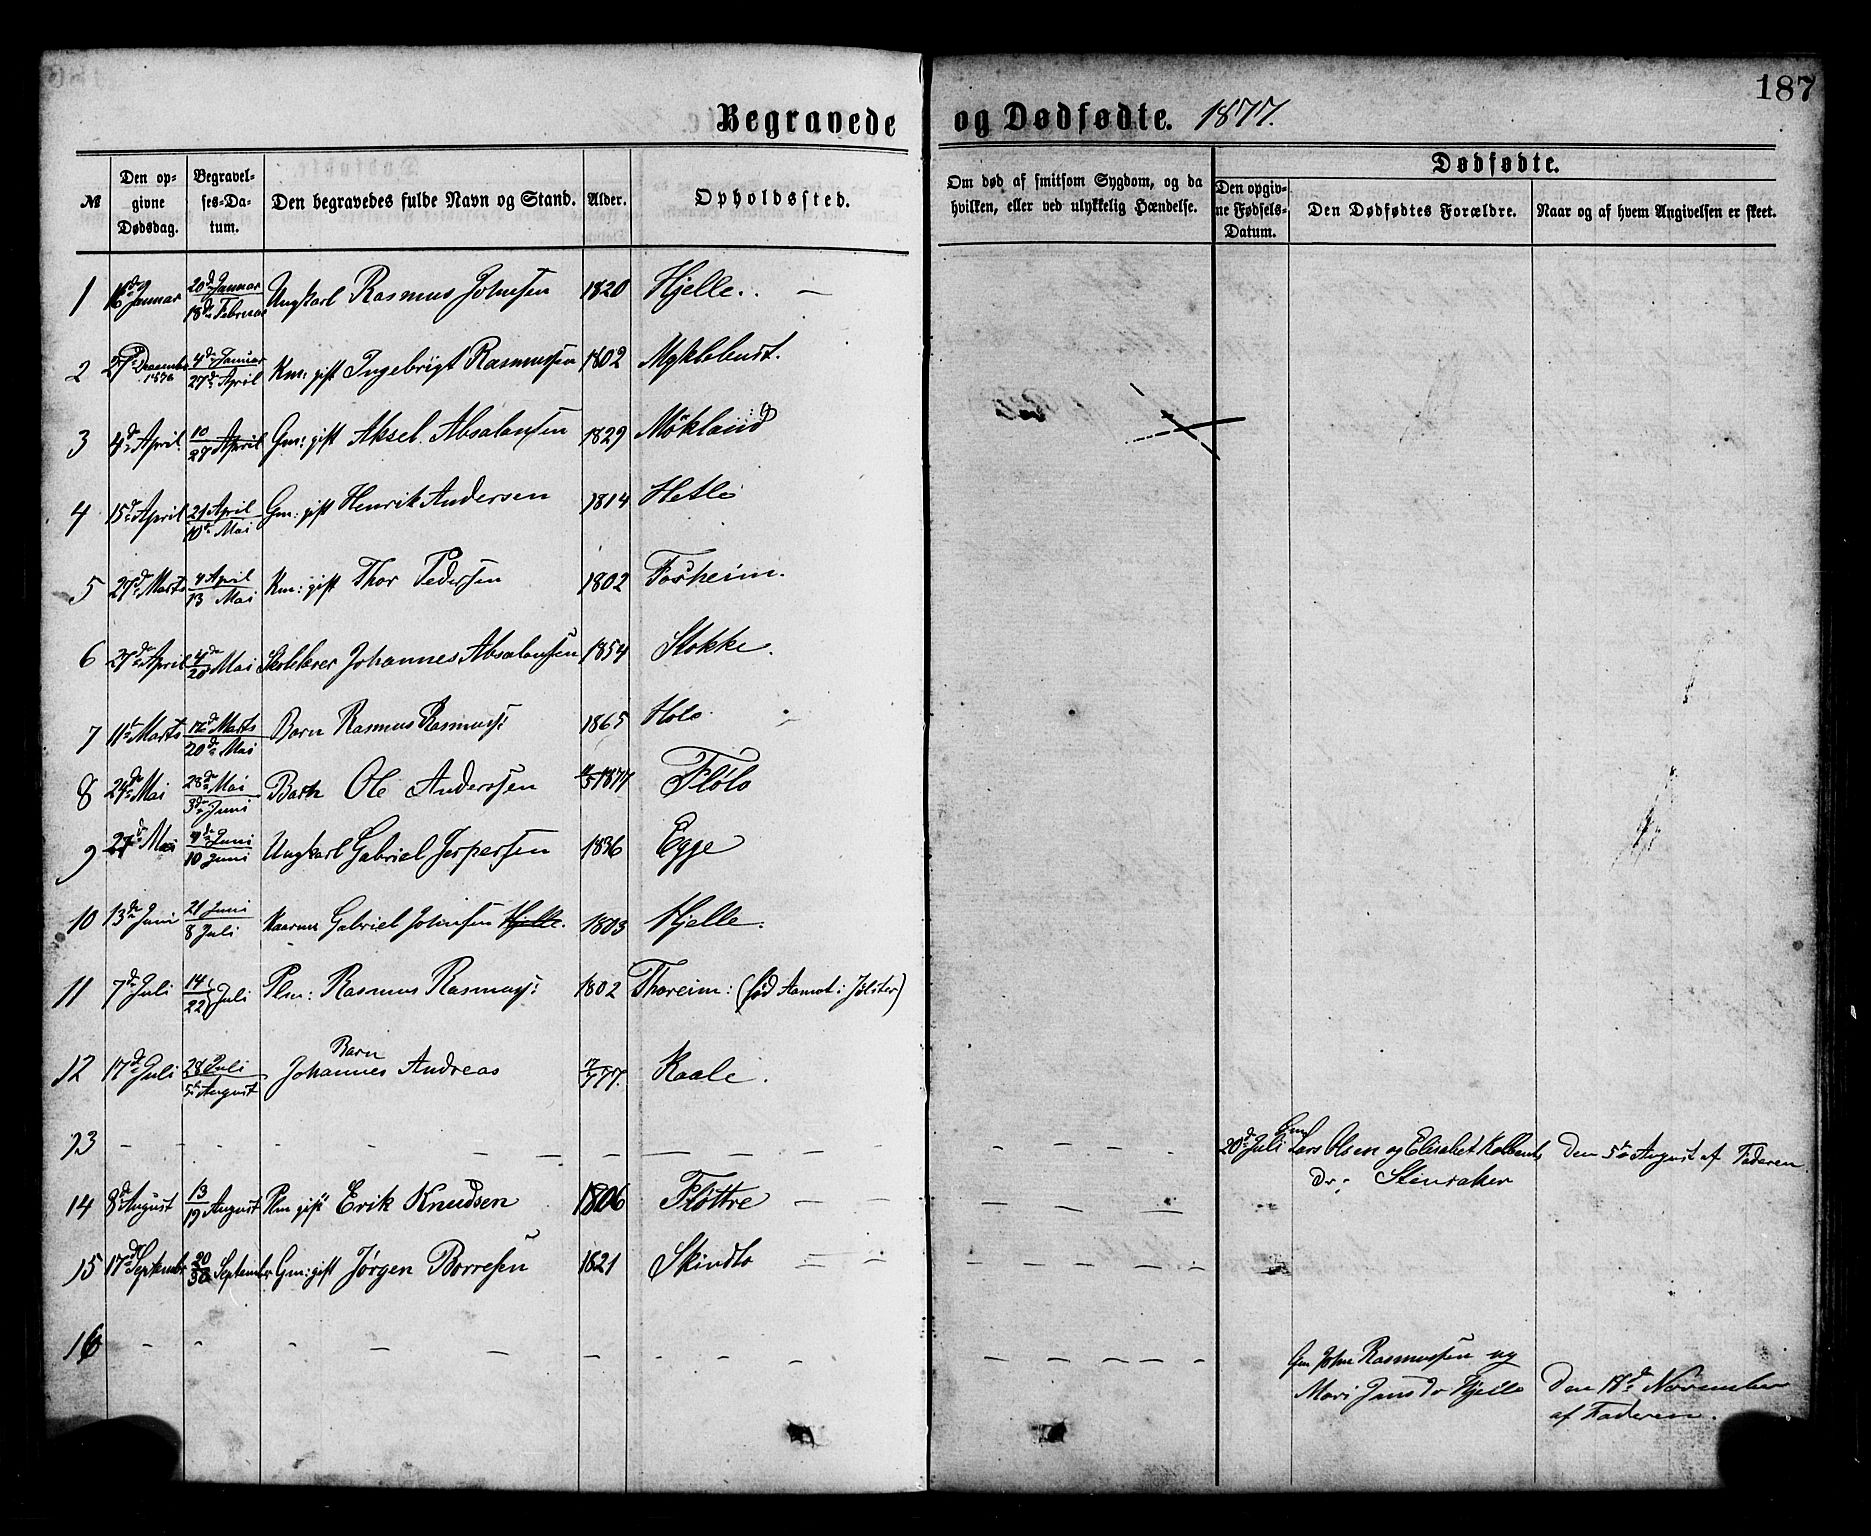 187
Begravede og Dødfødte. 1877.
№ Den opgivne Dødsdag. Begravelses-Datum. Den begravedes fulde Navn og Stand. Alder. Opholdssted. Om død af smitsom Sygdom, og da hvilken, eller ved ulykkelig Hændelse. Dødfødte. Den opgivne Fødsels-Datum. Den Dødfødtes Forældre. Naar og af hvem Angivelsen er skeet.
1 16d Januar 20d Januar 18de Februar Ungkarl Rasmus Johnsen 1820 Hjelle. —
2 27d December 1876 4de Januar 27d April Km: gift Ingebrigt Rasmussen 1802 Myklebust.
3 4d April 10 27 April Gm: gift Aksel Absalonsen 1829 Mökland
4 15d April 21 April 10de Mai Gm: gift Henrik Andersen 1814 Hetle
5 27d Marts 4 April 13 Mai Km: gift Thor Pedersen 1802 Fosheim.
6 27de April 4de 20 Mai Skolelærer Johannes Absalonsen 1854 Stokke.
7 11te Marts 17de Marts 20de Mai Barn Rasmus Rasmuss: 1865 Hole
8 24de Mai 28de Mai 3de Juni Barn Ole Andersen 1877 Flølo
9 27d Mai 4de Juni 10 Juni Ungkarl Gabriel Jespersen 1836 Egge
10 13de Juni 21 Juni 8 Juli Kaarm Gabriel Johnsen Hjelle. 1803 Hjelle.
11 7de Juli 14 22 Juli Plm: Rasmus Rasmuss: 1802 Thoreim: (fød Aamot i Jølster)
12 17d Juli 28 Juli 5te August Barn Johannes Andreas 7/7 77. Kaale.
13 — — — — — — — — — 20d Juli Gm Lars Olsen og Elisabet Kolbents Dr: Stenraker Den 5te August af Faderen
14 8d August 13 19 August Plm gift Erik Knudsen 1806 Fløttre — — — — —
15 17d September 20 30 September Gm: gift Jørgen Borresen 1821 Skindlo — — — —
16 — — — — — — — — — Gm John Rasmussen og Mari Jensdr Hjelle Den 18d November af Faderen.